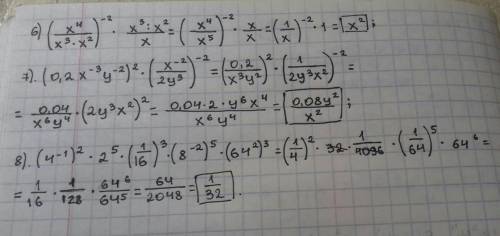 6) (x⁴/(x³·x²))⁻² · (x³:x²)/x = (x⁴/x⁵)⁻² · x/x = (1/x)⁻² · 1 = x² ;
7). (0,2 x⁻³y⁻²)² · (x⁻²/2y³)⁻² = (0,2/x³y²)² · (1/2y³x²)⁻² =
= 0,04/x⁶y⁴ · (2y³x²)² = 0,04·2·y⁶x⁴/x⁶y⁴ = 0,08y²/x² ;
8). (4⁻¹)² · 2⁵ · (1/16)³ · (8⁻²)⁵ · (64²)³ = (1/4)² · 32 · 1/4096 · (1/64)⁵ · 64⁶ =
= 1/16 · 1/128 · 64⁶/64⁵ = 64/2048 = 1/32 .